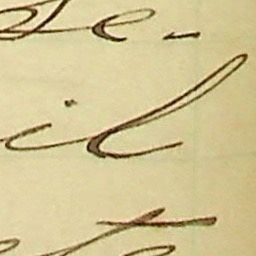 se-
il
te